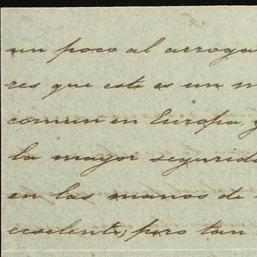 un poco al arroga
res que este es un m
comun en Europa y
la mayor segurida
en las manos de
ecselente, pero tan